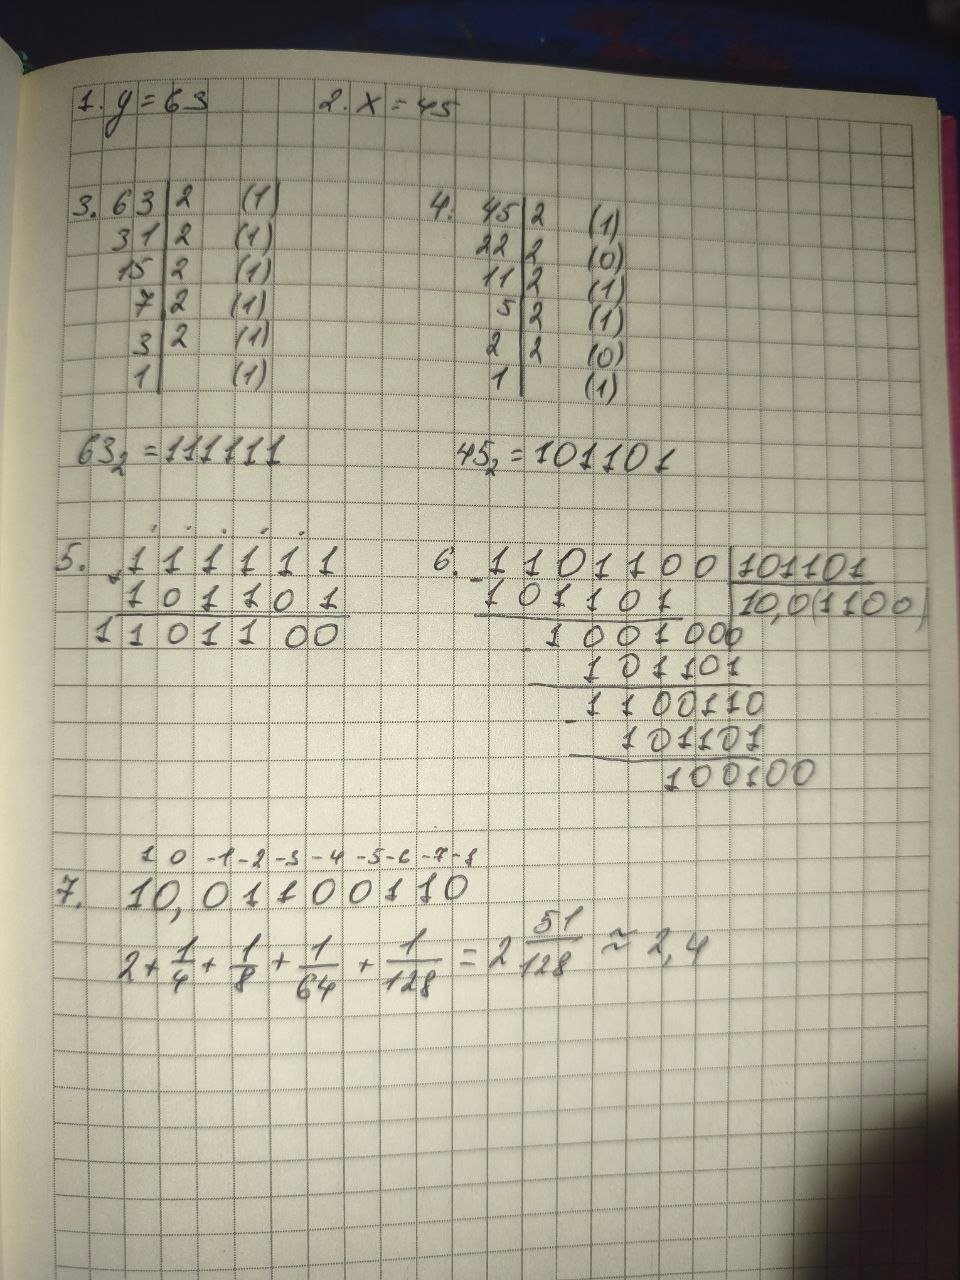 1. y = 63 2. x = 45
3. 63 2 (1) 4. 45 2 (1)
31 2 (1) 22 2 (0)
15 2 (1) 11 2 (1)
7 2 (1) 5 2 (1)
3 2 (1) 2 2 (0)
1 (1) 1 (1)
63₂ = 111111 45₂ = 101101
5. + 111111 6. - 1101100 101101
101101 101101 10,0(1100)
1101100 - 1001000
101101
- 1100110
101101
100100
1 0 -1 -2 -3 -4 -5 -6 -7 -8
7. 10,01100110
2 + 1/4 + 1/8 + 1/64 + 1/128 = 2 51/128 ≈ 2,4